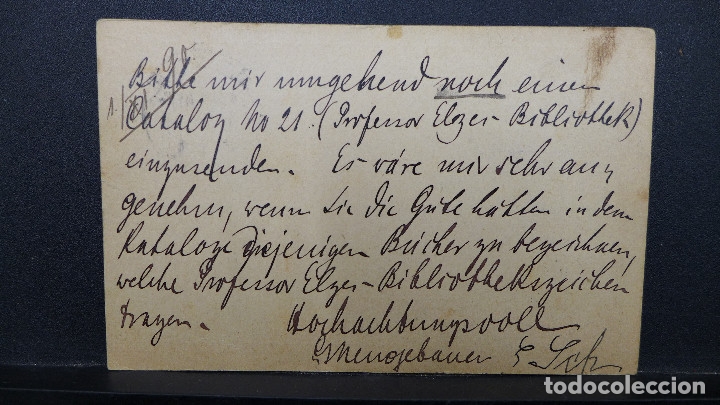 Bitte mir umgehend noch einen
Catalog No 21. (Professor Elzes-Bibliothek)
einzusenden. Es wäre mir sehr an-
genehm, wenn Sie die Güte hätten in dem
Kataloge diejenigen Bücher zu bezeichnen,
welche Professor Elzes-Bibliothekszeichen
tragen. Hochachtungsvoll
todocoleccion.net